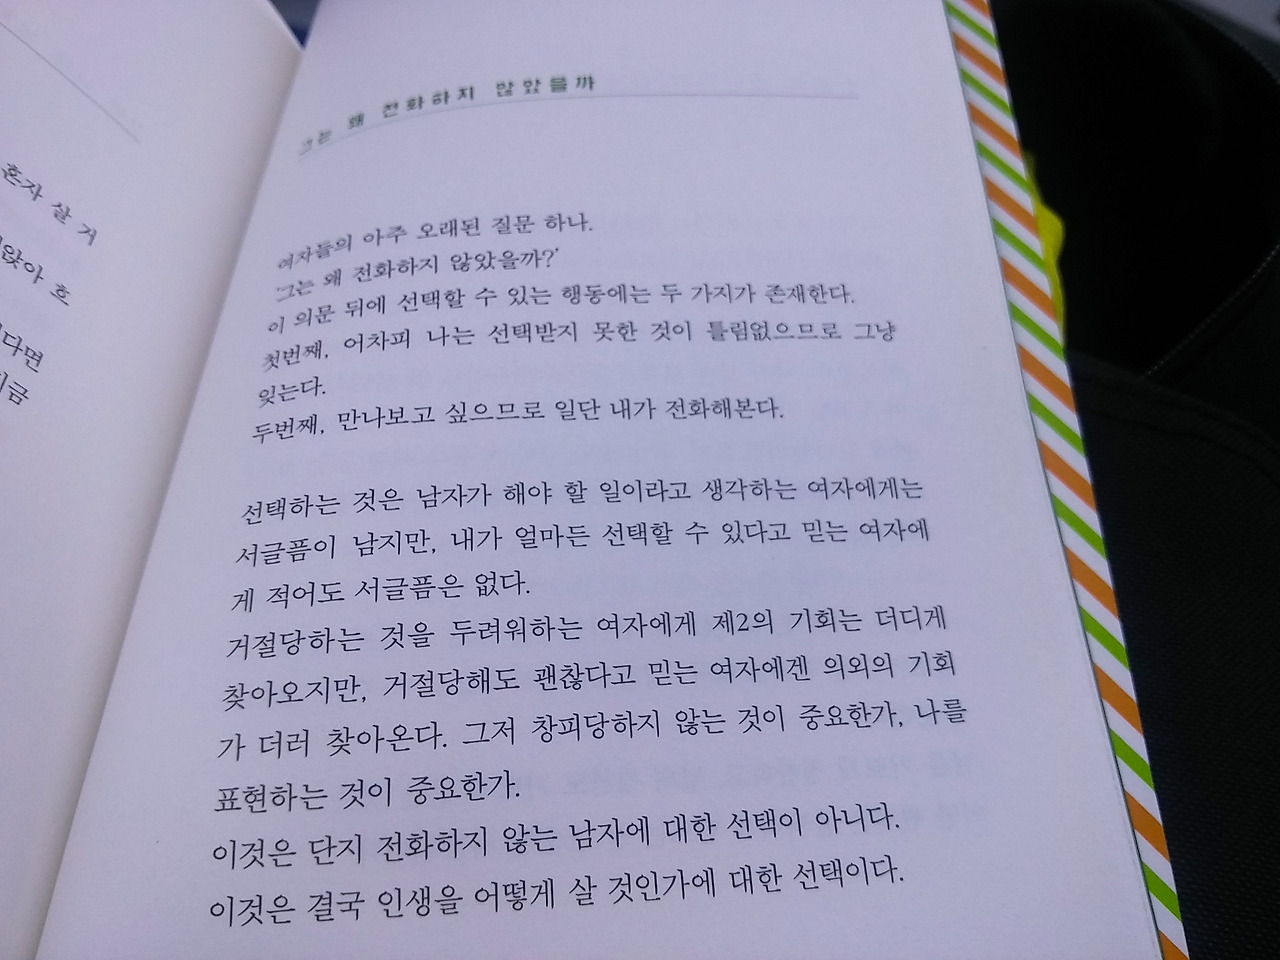 혼자 살 거
앉아 흐
다면
지금
그는 왜 전화하지 않았을까
여자들의 아주 오래된 질문 하나.
'그는 왜 전화하지 않았을까?'
이 의문 뒤에 선택할 수 있는 행동에는 두 가지가 존재한다.
첫번째, 어차피 나는 선택받지 못한 것이 틀림없으므로 그냥
잊는다.
두번째, 만나보고 싶으므로 일단 내가 전화해본다.
선택하는 것은 남자가 해야 할 일이라고 생각하는 여자에게는
서글픔이 남지만, 내가 얼마든 선택할 수 있다고 믿는 여자에
게 적어도 서글픔은 없다.
거절당하는 것을 두려워하는 여자에게 제2의 기회는 더디게
찾아오지만, 거절당해도 괜찮다고 믿는 여자에겐 의외의 기회
가 더러 찾아온다. 그저 창피당하지 않는 것이 중요한가, 나를
표현하는 것이 중요한가.
이것은 단지 전화하지 않는 남자에 대한 선택이 아니다.
이것은 결국 인생을 어떻게 살 것인가에 대한 선택이다.